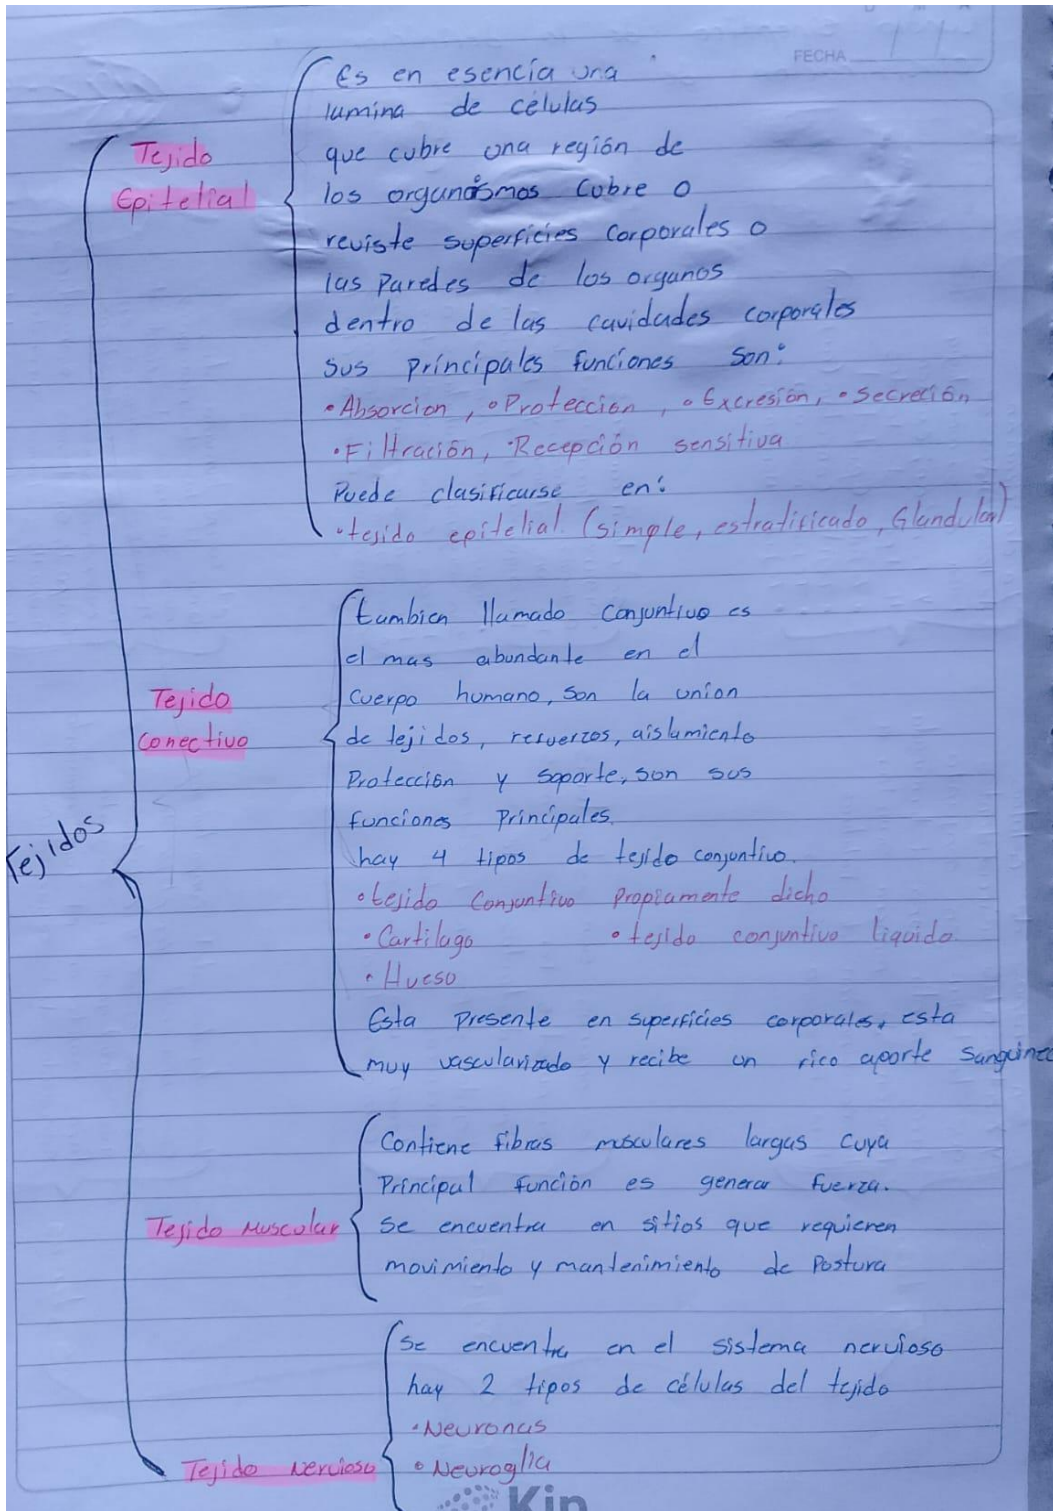 FECHA
Es en esencía una
lamina de células
que cubre una región de
los organismos cubre o
reviste superficies corporales o
las Paredes de los organos
dentro de las cavidades corporales
sus principales funciones son:
•Absorcion, •Protección, •Excresión, •Secreción
•Filtración, •Recepción sensitiva
Puede clasificarse en:
•tejido epitelial (simple, estratificado, Glandular)
Tejido
Epitelial
tambien llamado Conjuntivo es
el mas abundante en el
cuerpo humano, son la union
de tejidos, refuerzos, aislamiento
Protección y soporte, son sus
funciones Principales.
hay 4 tipos de tejido conjuntivo.
•tejido Conjuntivo Propiamente dicho
•Cartilago •tejido conjuntivo liquido
•Hueso
Esta Presente en superficies corporales, esta
muy vascularizado y recibe un rico aporte sanguineo
Tejido
Conectivo
Tejidos
Contiene fibras musculares largas cuya
Principal función es generar fuerza.
se encuentra en sitios que requieren
movimiento y mantenimiento de Postura
Tejido Muscular
Se encuentra en el sistema nervioso
hay 2 tipos de células del tejido
•Neuronas
•Neuroglia
Tejido Nervioso
Kin